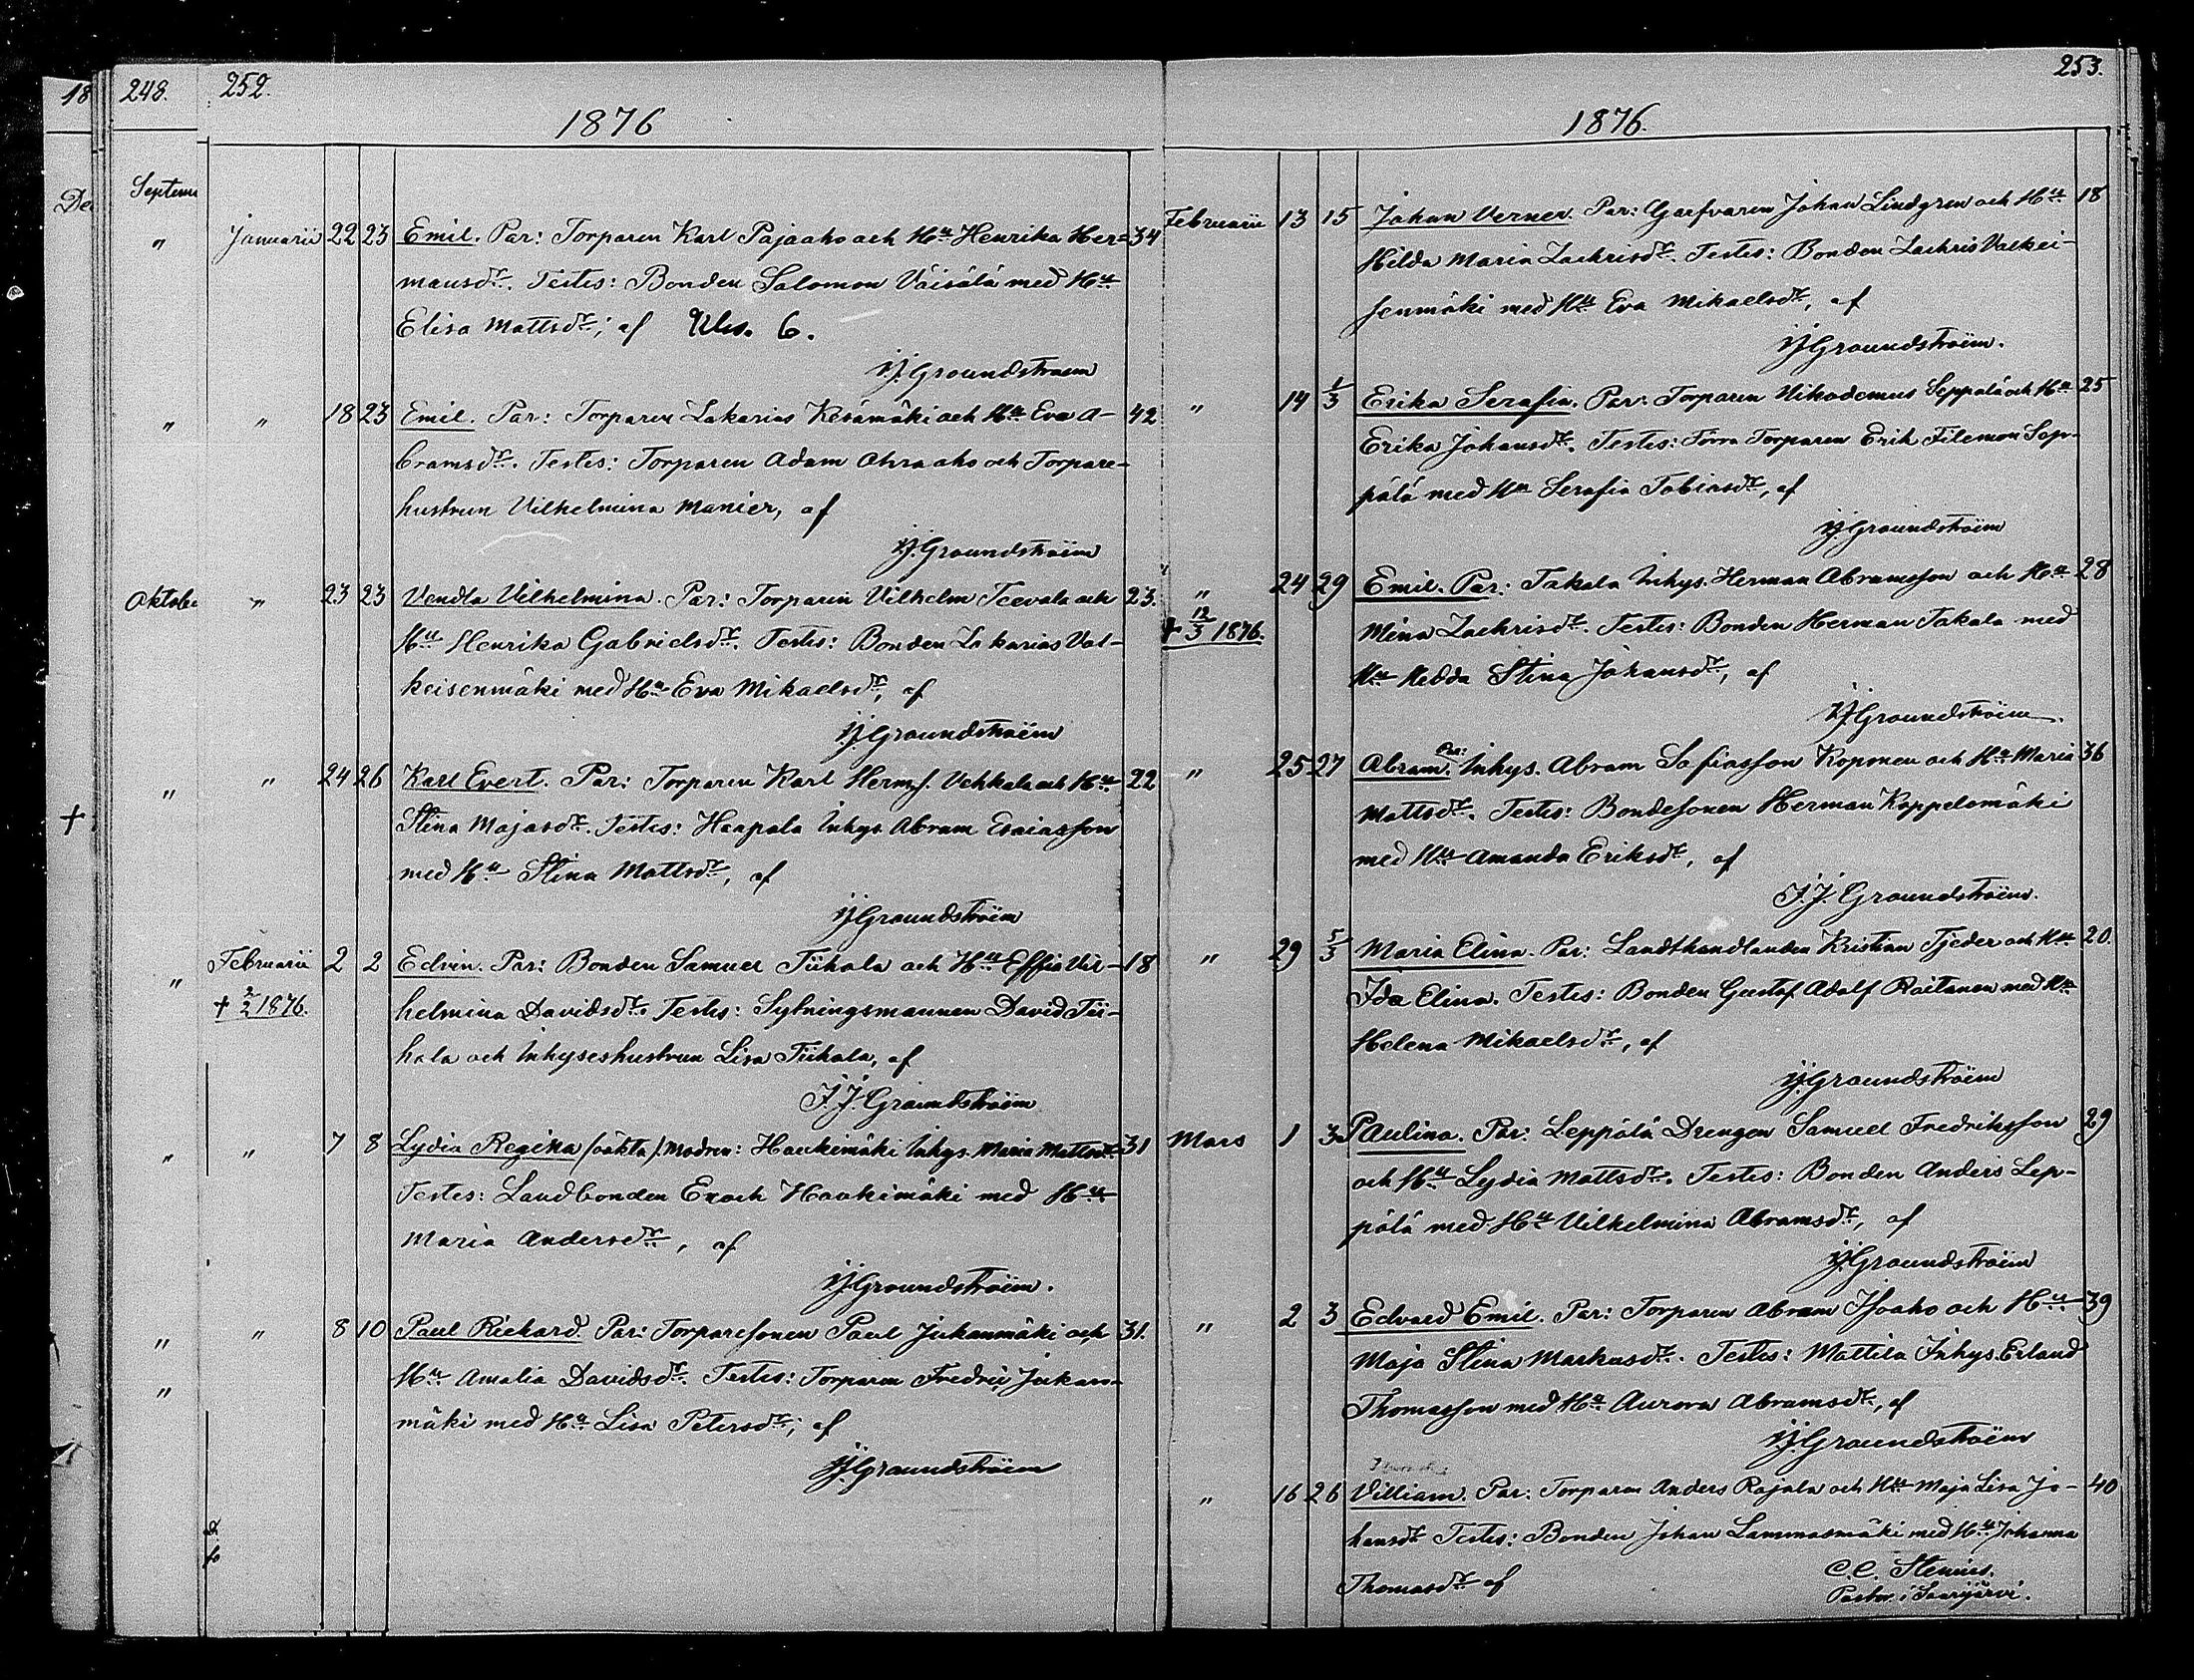 18 248. 252.
1876
De Septem
" Januarii 22 23 Emil. Par: Torparen Karl Pajaaho och Hu Henrika Her= 34
mansdr. Testes: Bonden Salomon Väisälä med Hu
Elisa Mattsdr; af Ulv. 6.
J.J. Groundstroem
" " 18 23 Emil. Par: Torparen Zakarias Kesämäki och Hu Eva A- 42
bramsdr. Testes: Torparen Adam Ahraaho och Torpare-
hustrun Vilhelmina Manier, af
J.J. Groundström
Oktobe " 23 23 Vendla Vilhelmina. Par: Torparen Vilhelm Teevala och 23.
Hu Henrika Gabrielsdr. Testes: Bonden Zakarias Val-
keisenmäki med Hu Eva Mikaelsdr, af
J.J. Groundström
" " 24 26 Karl Evert. Par: Torparen Karl Hermss. Vehkala och Hu 22
+ Stina Majasdr. Testes: Haapala Inhys Abram Esaiasson
med Hu Stina Mattsdr, af
J.J. Groundström
" Februarii 2 2 Edvin. Par: Bonden Samuel Tiihala och Hu Effia Vil- 18
+ 2/2 1876. helmina Davidsdr. Testes: Sytningsmannen David Tii-
hala och Inhyseshustrun Lisa Tiihala, af
J.J. Groundström
" " 7 8 Lydia Regina (oäkta). Modren: Haukimäki Inhys. Maria Mattsdr 31
Testes: Landbonden Enoch Haukimäki med Hu
Maria Andersdr, af
J.J. Groundström.
" " 8 10 Paul Rickard. Par: Torparesonen Paul Jukanmäki och 31.
" Hu Amalia Davidsdr. Testes: Torparen Fredric Jukan-
mäki med Hu Lisa Petersdr; af
J.J. Groundström
253.
1876.
Februarii 13 15 Johan Verner. Par: Garfvaren Johan Lindgren och Hu 18
Hilda Maria Zachrisdr. Testes: Bonden Zachris Valkei-
senmäki med Hu Eva Mikaelsdr, af
J.J. Groundström.
" 14 1/3 Erika Serafia. Par: Torparen Nikodemus Seppälä och Hu 25
Erika Johansdr. Testes: Förra Torparen Erik Filemon Sep-
pälä med Hu Serafia Tobiasdr, af
J.J. Groundström
" 24 29 Emil. Par: Takala Inhys. Herman Abramsson och Hu 28
+ 12/3 1876. Mina Zachrisdr. Testes: Bonden Herman Takala med
Hu Hedda Stina Johansdr, af
J.J. Groundström.
" 25 27 Abram. Par: Inhys. Abram Safiasson Koponen och Hu Maria 36
Mattsdr. Testes: Bondesonen Herman Koppelomäki
med Hu Amanda Eriksdr, af
J.J. Groundström.
" 29 5/3 Maria Elina. Par: Landthandlanden Kristian Tjeder och Hu 20.
Ida Elina. Testes: Bonden Gustaf Adolf Raitanen med Hu
Helena Mikaelsdr, af
J.J. Groundström
Mars 1 3 Paulina. Par: Leppälä Drengen Samuel Fredriksson 29
och Hu Lydia Mattsdr. Testes: Bonden Anders Lep-
pälä med Hu Vilhelmina Abramsdr, af
J.J. Groundström
" 2 3 Edvard Emil. Par: Torparen Abram Isoaho och Hu 39
Maja Stina Markusdr. Testes: Mattila Inhys. Erland
Thomasson med Hu Aurora Abramsdr, af
J.J. Groundström
" 16 26 Villiam. Par: Torparen Anders Rajala och Hu Maja Lisa Jo- 40
hansdr Testes: Bonden Johan Lammasmäki med Hu Johanna
Thomasdr af C.C. Stenius.
Pastor i Saarijärvi.